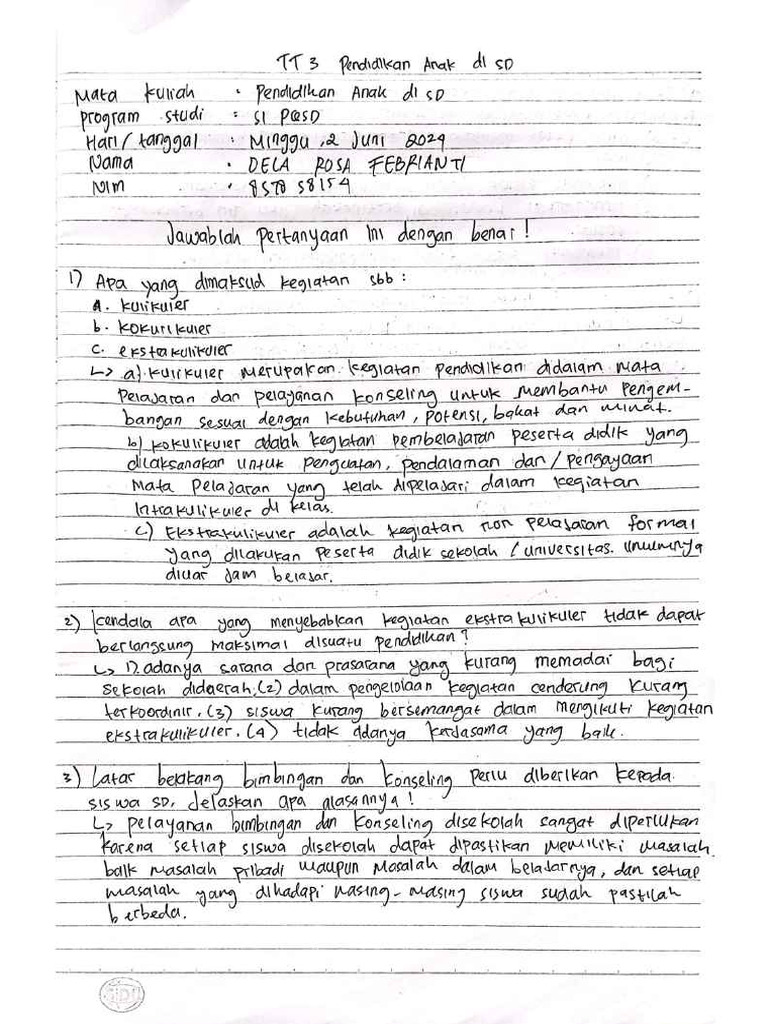 TT 3 Pendidikan Anak di SD
Mata kuliah : Pendidikan Anak di SD
Program studi : S1 PGSD
Hari/tanggal : Minggu, 2 Juni 2024
Nama : DELA ROSA FEBRIANTI
Nim : 857858154
Jawablah pertanyaan ini dengan benar!
1) Apa yang dimaksud kegiatan sbb :
a. kulikuler
b. kokurikuler
c. ekstrakulikuler
↳ a) kurikuler merupakan kegiatan pendidikan didalam mata
pelajaran dan pelayanan konseling untuk membantu pengem-
bangan sesuai dengan kebutuhan, potensi, bakat dan minat.
b) kokulikuler adalah kegiatan pembelajaran peserta didik yang
dilaksanakan untuk penguatan, pendalaman dan/pengayaan
mata pelajaran yang telah dipelajari dalam kegiatan
intrakulikuler di kelas.
c) Ekstrakulikuler adalah kegiatan non pelajaran formal
yang dilakukan peserta didik sekolah/universitas. umumnya
diluar jam belajar.
2) kendala apa yang menyebabkan kegiatan ekstrakulikuler tidak dapat
berlangsung maksimal disuatu pendidikan?
↳ 1). adanya sarana dan prasarana yang kurang memadai bagi
sekolah didaerah, (2) dalam pengelolaan kegiatan cenderung kurang
terkoordinir. (3) siswa kurang bersemangat dalam mengikuti kegiatan
ekstrakulikuler. (4) tidak adanya kerjasama yang baik.
3) Latar belakang bimbingan dan konseling perlu diberikan kepada
siswa SD, jelaskan apa alasannya!
↳ pelayanan bimbingan dan konseling disekolah sangat diperlukan
karena setiap siswa disekolah dapat dipastikan memiliki masalah
baik masalah pribadi maupun masalah dalam belajarnya, dan setiap
masalah yang dihadapi masing-masing siswa sudah pastilah
berbeda.
SIDU